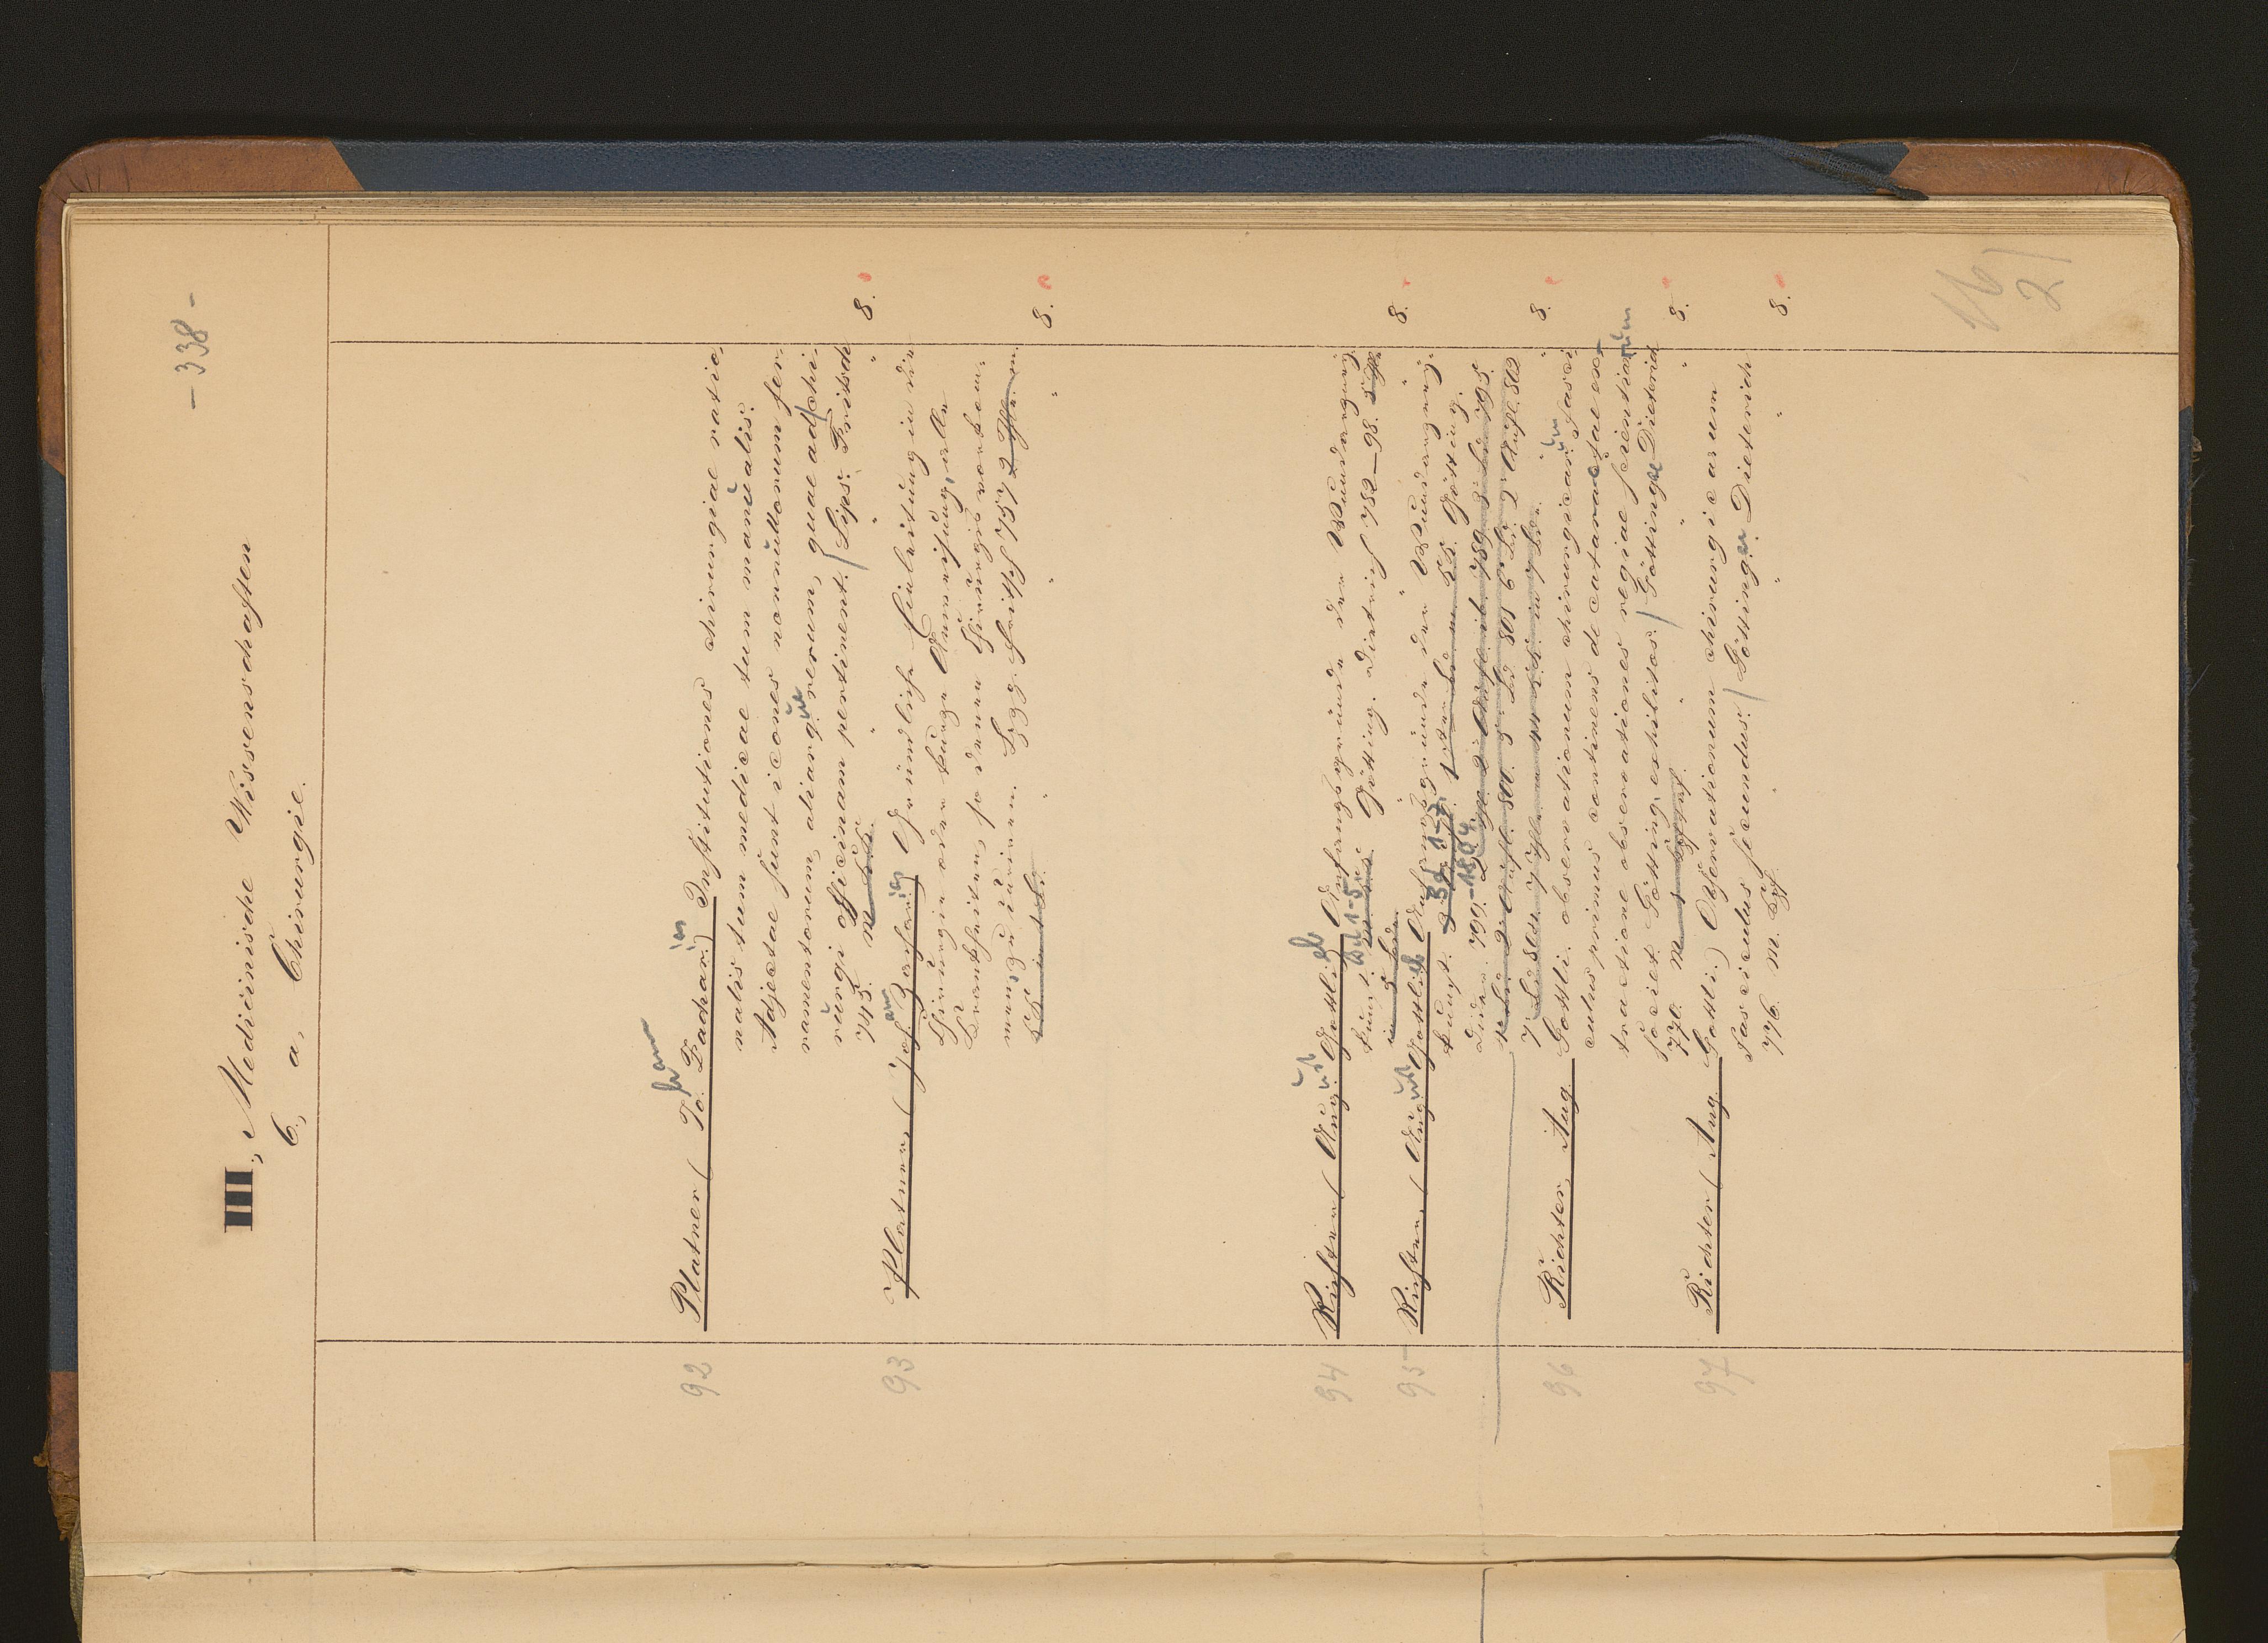 - 338 -
III, Medicinische Wissenschaften
6, a, Chirurgie.
92 Platner (Jo.hann Zachar.ias) Institutiones chirurgiae ratio-
nalis tum medicae tum manualis.
Adjectae sunt icones nonnullorum fer-
ramentorum, aliarumque rerum, quae ad chi-
rurgi officinam pertinent. / Lips. Fritsch
745. 8.
93 Platner, (Johann Zacharias) Gründliche Einleitung in die
Chirurgie oder kurze Anweisung, alle
Krankheiten, so denen Chirurgis vorkom-
men, zu curiren. Lpzg. Fritsch 757 2 Thle in
8.
94 Richter (August Gottlieb) Anfangsgründe der Wundarzney-
kunst. Bd 1-5 Götting. Dietrich 782-98.
in 5 Bdn 8.
95 Richter, (August Gottlieb) Anfangsgründe der Wundarzney-
kunst. Bd 1-7. Götting.
Dietr. 799.-1804. 789 3. Bd 795.
7. Bd 804. 7 Thle in 7 Bdn 8.
96 Richter, Aug. Gottli. observationum chirurgicarum Fasci-
culus primus continens de cataractae ex-
tractione observationes regiae scientiarum
societ. Götting. exhibitas. / Göttingae Dietrich
770. 8.
97 Richter (Aug. Gottli.) Observationum chirurgicarum
Fasciculus secundus. / Göttingae Dieterich
776. 8.
16
21